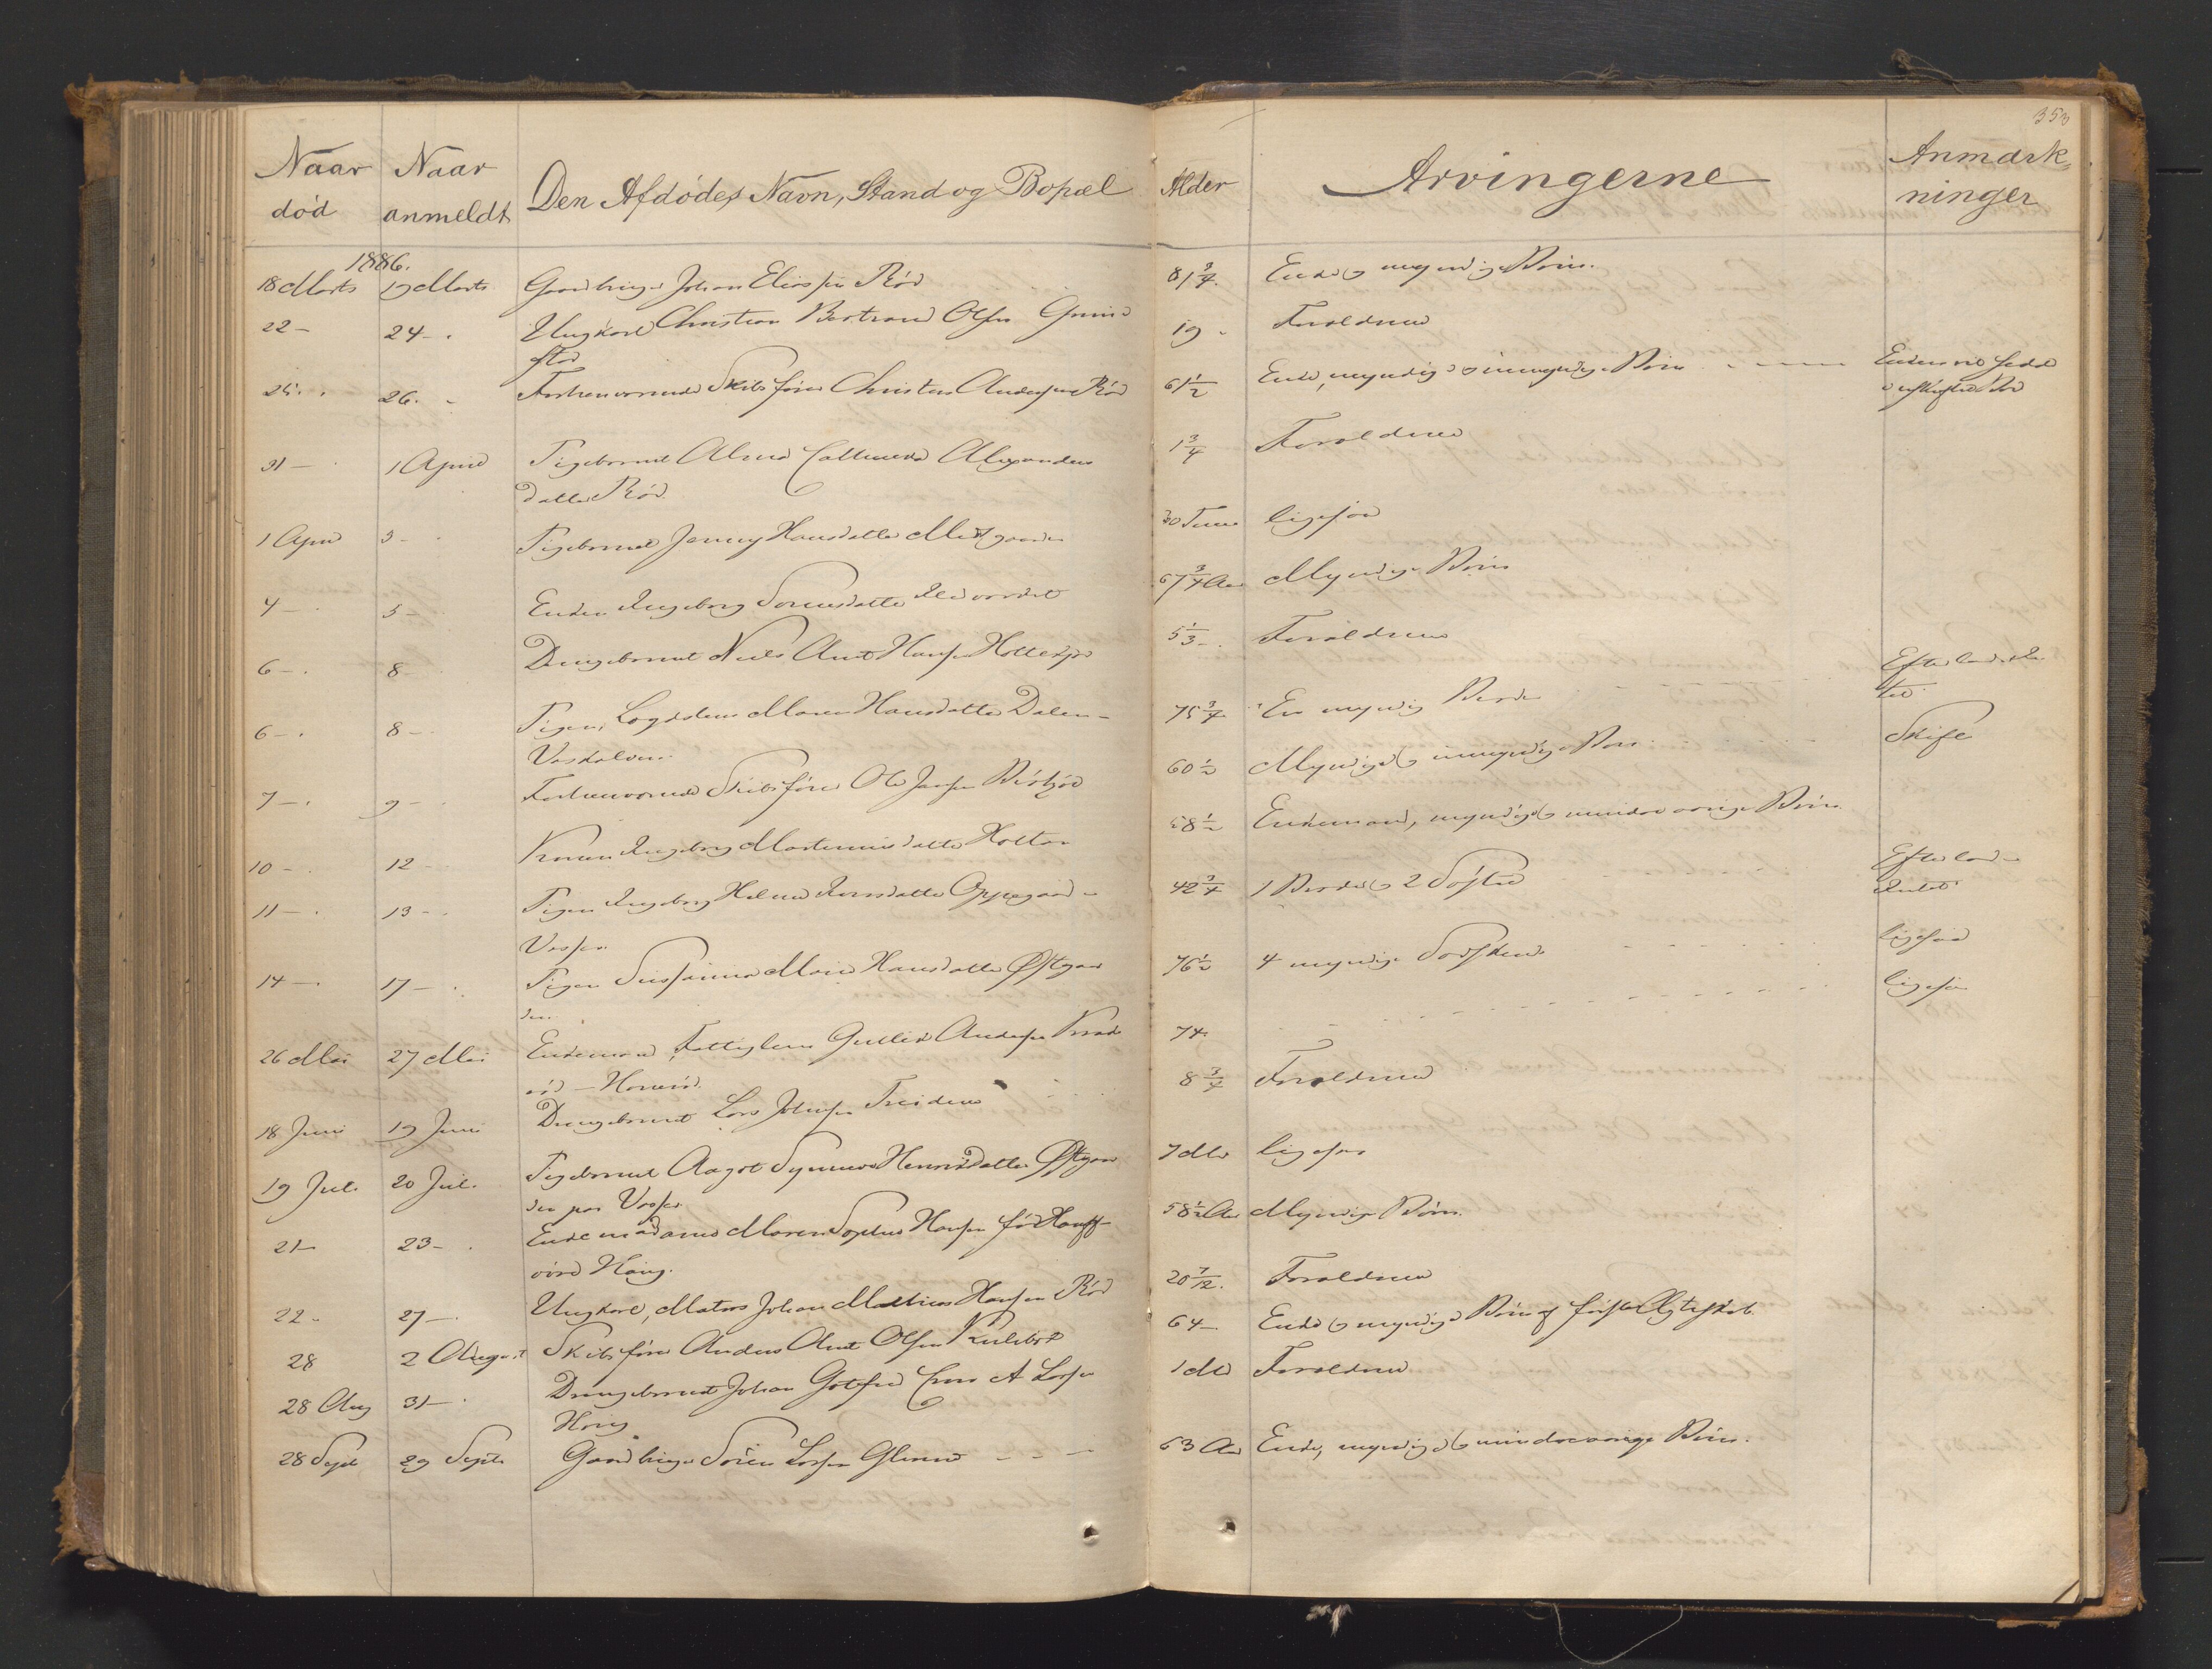 353
Naar død
Naar anmeldt
Den Afdødes Navn, Stand og Bopæl
Alder
Arvingerne
Anmærk-
ninger
1886.
18 Marts 19 Marts Gaardbruger Johan Eliassen Rød 81 3/4. Enke og myndige Børn.
22 – 24 – . Ungkarl Christian Bertrand Olsen 19 – Forældrene
25. . 26. – Forhenværende Skibsfører Christen Andersen Rød 61 1/2 Enke, myndige og umyndige Børn Enken
i uskiftet Bo
31 – . 1 April Pigebarnet Alma Alexanders 1 3/4 Forældrene
datter Rød.
1 April 3 – Pigebarnet Jenny Hansdatter 30 Timer ligesaa
4 – . 5 – Enken Ingeborg Sørensdatter 67 3/4 Aar Myndige Børn
6 – . 8 – Drengebarnet Nils Anut Hansen 5 1/3 – . Forældrene
6 – . 8 – . Pigen, Lægdslem Maren Hansdatter Dalen – 75 3/4 En myndig Broder Efterlod In-
tet
7 – . 9 – . Forhenværende Skibsfører Ole Jansen 60 1/2 Myndige og umyndige Børn Skifte
10 – . 12 – Konen Ingeborg Martinusdatter Holtan 58 1/2 Enkemand, myndige og mindreaarige Børn
11 – . 13 – . Pigen Ingeborg Helene Oppegaard – 42 3/4 1 Broder og 2 Søstre Efterlod
Intet
Vasser.
14 – . 17 – . Pigen Sussanna Marie Hansdatter Østgaar 76 1/2 4 myndige Sødskende ligesaa
den.
26 Mai 27 Mai Enkemand, Fattiglem Gullik Andersen 74. ligesaa
18 Juni 19 Juni Drengebarnet Lars Johansen 8 3/4 Forældrene
19 Jul. 20 Jul. Pigebarnet Aagot Synnøve Henriksdatter Østgaar 7 Md ligesaa
den paa Vasser
21 – 23 – . Enkemadame Maren Sophie Hansen født 58 1/2 Aar Myndige Børn
Haug.
22 – 27 – . Ungkarl, Matros Johan Mathias Hansen Rød 20 7/12. Forældrene
28 2 August Skibsfører Anders Anut Olsen 64 – Enke og myndige Børn af første Ægteskab.
28 Aug 31 – . Drengebarnet Johan Gotfred Larsen 1 Md Forældrene
28 Sept 29 Septe Gaardbruger Søren Larsen Glenne – – – 63 Aar Enke, myndige og mindreaarige Børn.